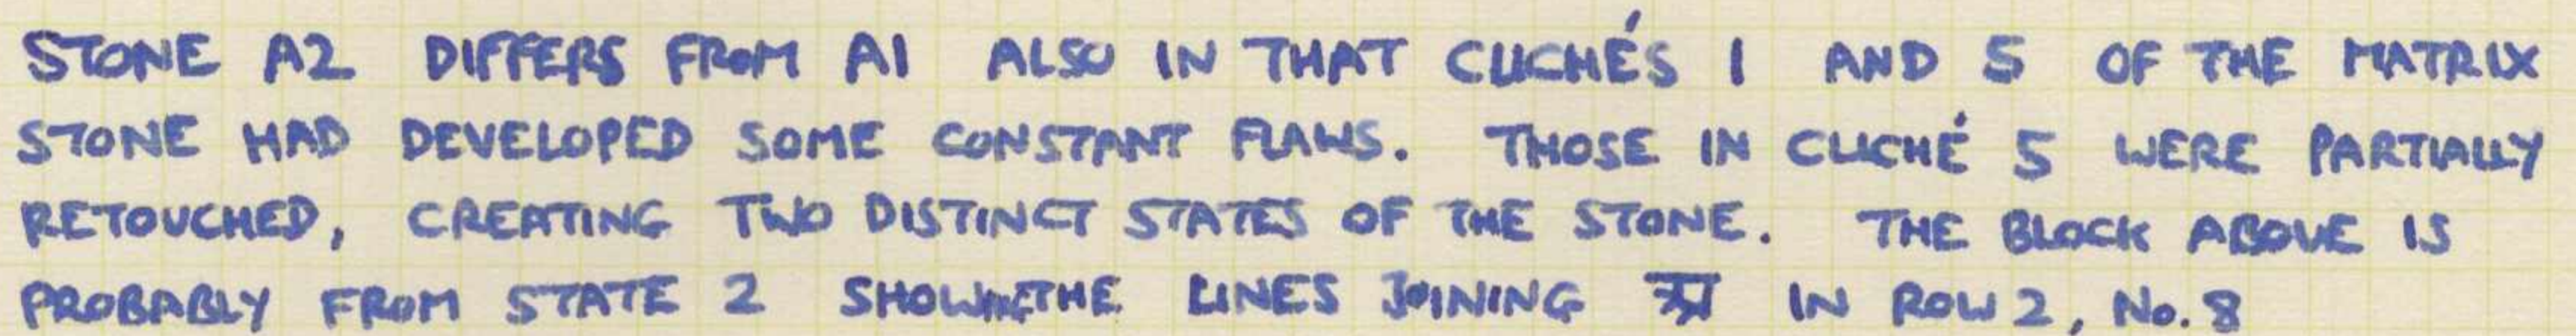 STONE A2 DIFFERS FROM A1 ALSO IN THAT CLICHÉS 1 AND 5 OF THE MATRIX
STONE HAD DEVELOPED SOME CONSTANT FLAWS. THOSE IN CLICHÉ 5 WERE PARTIALLY
RETOUCHED, CREATING TWO DISTINCT STATES OF THE STONE. THE BLOCK ABOVE IS
PROBABLY FROM STATE 2 SHOWING THE LINES JOINING IN ROW 2, No. 8